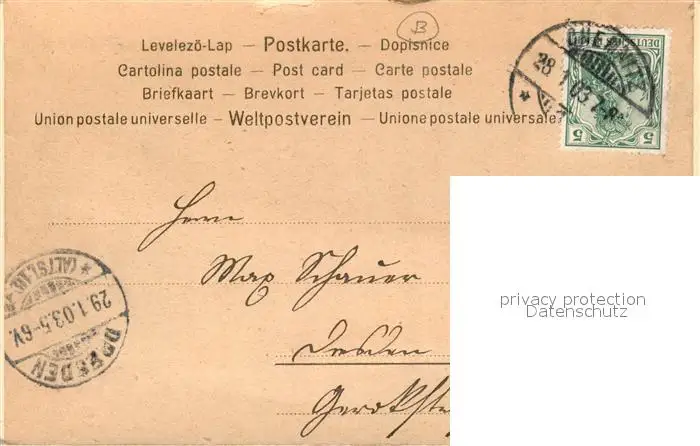 B
Levelezö-Lap — Postkarte. — Dopisnice
Cartolina postale — Post card — Carte postale
Briefkaart — Brevkort — Tarjetas postale
Union postale universelle — Weltpostverein — Unione postale universale
28 1 03 7-8
5 5
Herrn
Max Schauer
Dresden
Gerokstr
DRESDEN
(ALTST.)
29.1.03.5-6V.
privacy protection
Datenschutz